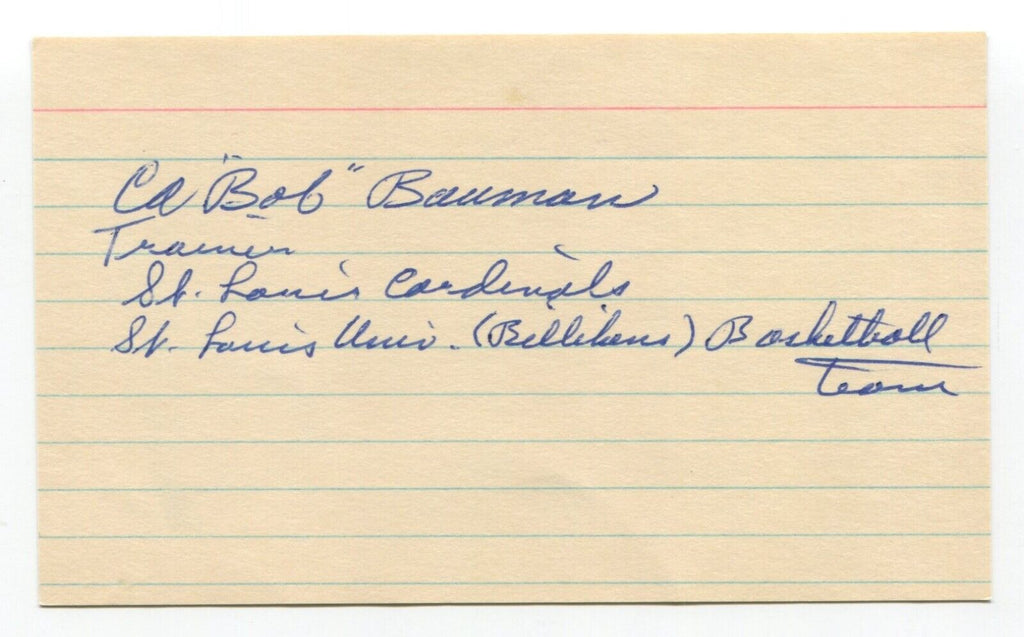 CA "Bob" Bauman
Trainer
St. Louis Cardinals
St. Louis Univ. (Billikens) Basketball
Team